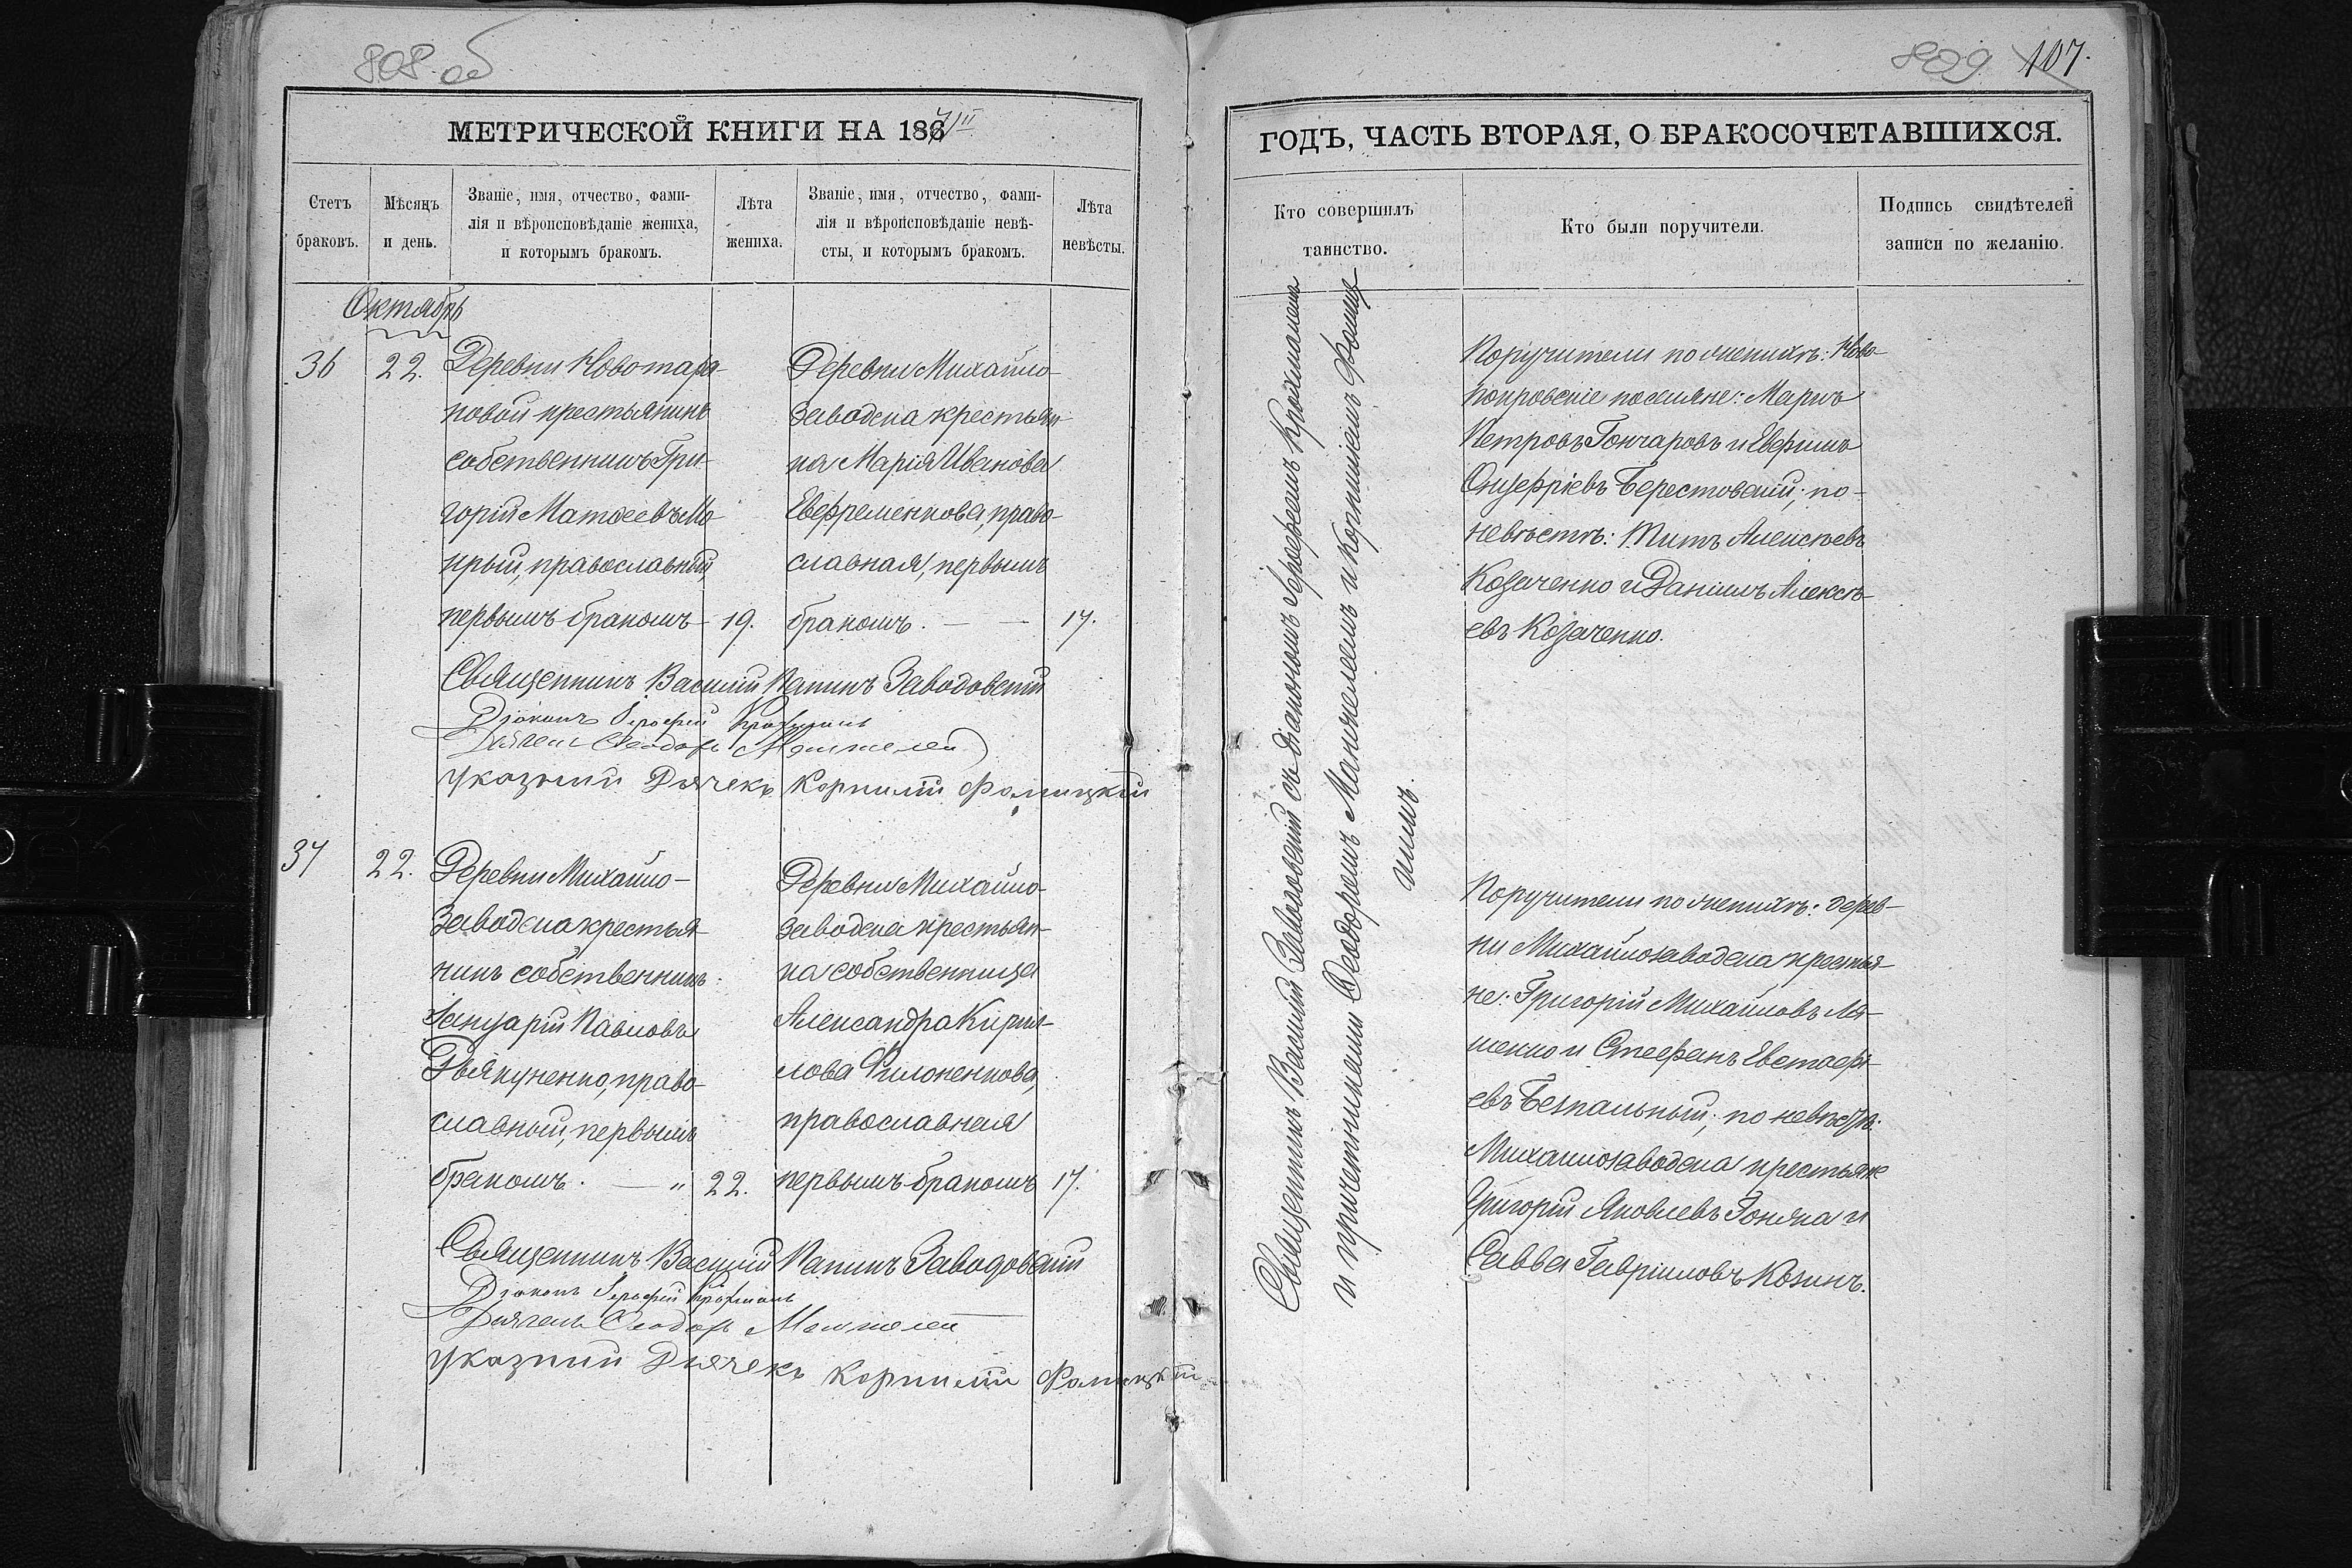 808 об
МЕТРИЧЕСКОЙ КНИГИ НА 186
Счетъ браковъ.
Мѣсяцъ и день.
Званіе, имя, отчество, фами-
лія и вѣроисповѣданіе жениха,
и которымъ бракомъ.
Лѣта жениха.
Званіе, имя, отчество, фами-
лія и вѣроисповѣданіе невѣ-
сты, и которымъ бракомъ.
Лѣта невѣсты.
Октябрь
36
22.
Деревни Новотара-
новой крестьянинъ
собственникъ Гри-
горій Матѳеевъ Мо-
крый, православный
первымъ бракомъ
19.
Деревни Михайло-
заводска крестьян-
ка Марія Иванова
Евфременкова, право-
славная, первымъ
бракомъ.
17.
Священникъ Василій Папинъ Заводовскій
Діаконъ Іерофей Крохмаль
Дьячекъ Ѳеодоръ Манжелей
Указный Дьячекъ Корнилій Фомицкій
37
22.
Деревни Михайло-
заводска крестья-
нинъ собственникъ
Іануарій Павловъ
Гвякуненко, право-
славный, первымъ
бракомъ.
22.
Деревни Михайло-
заводска крестьян-
ка собственница
Александра Кирил-
лова Филоненкова,
православная
первымъ бракомъ
17.
Священникъ Василій Папинъ Заводовскій
Діаконъ Іерофей Крохмаль
Дьячекъ Ѳеодоръ Манжелей
Указный Дьячекъ Корнилій Фомицкій
809
107.
ГОДЪ, ЧАСТЬ ВТОРАЯ, О БРАКОСОЧЕТАВШИХСЯ.
Кто совершилъ
таинство.
Кто были поручители.
Подпись свидѣтелей
записи по желанію.
Священникъ Василій Заводовскій съ діакономъ Іерофеемъ Крохмалемъ
и причетниками Ѳеодоромъ Манжелеемъ и Корниліемъ Фомиц-
кимъ.
Поручители по женихѣ: Ново-
покровскіе поселяне: Маркъ
Петровъ Гончаровъ и Евфимъ
Онуфріевъ Берестовскій; по-
невѣстѣ: Титъ Алексѣевъ
Козаченко и Даніилъ Алексѣ-
евъ Козаченко.
Поручители по женихѣ: дерев-
ни Михайлозаводска крестья-
не: Григорій Михайловъ Ля-
шенко и Стефанъ Евстафі-
евъ Безпальный; по невѣстѣ:
Михайлозаводска крестьяне
Григорій Яковлевъ Гоняка и
Савва Гавріиловъ Козинъ.